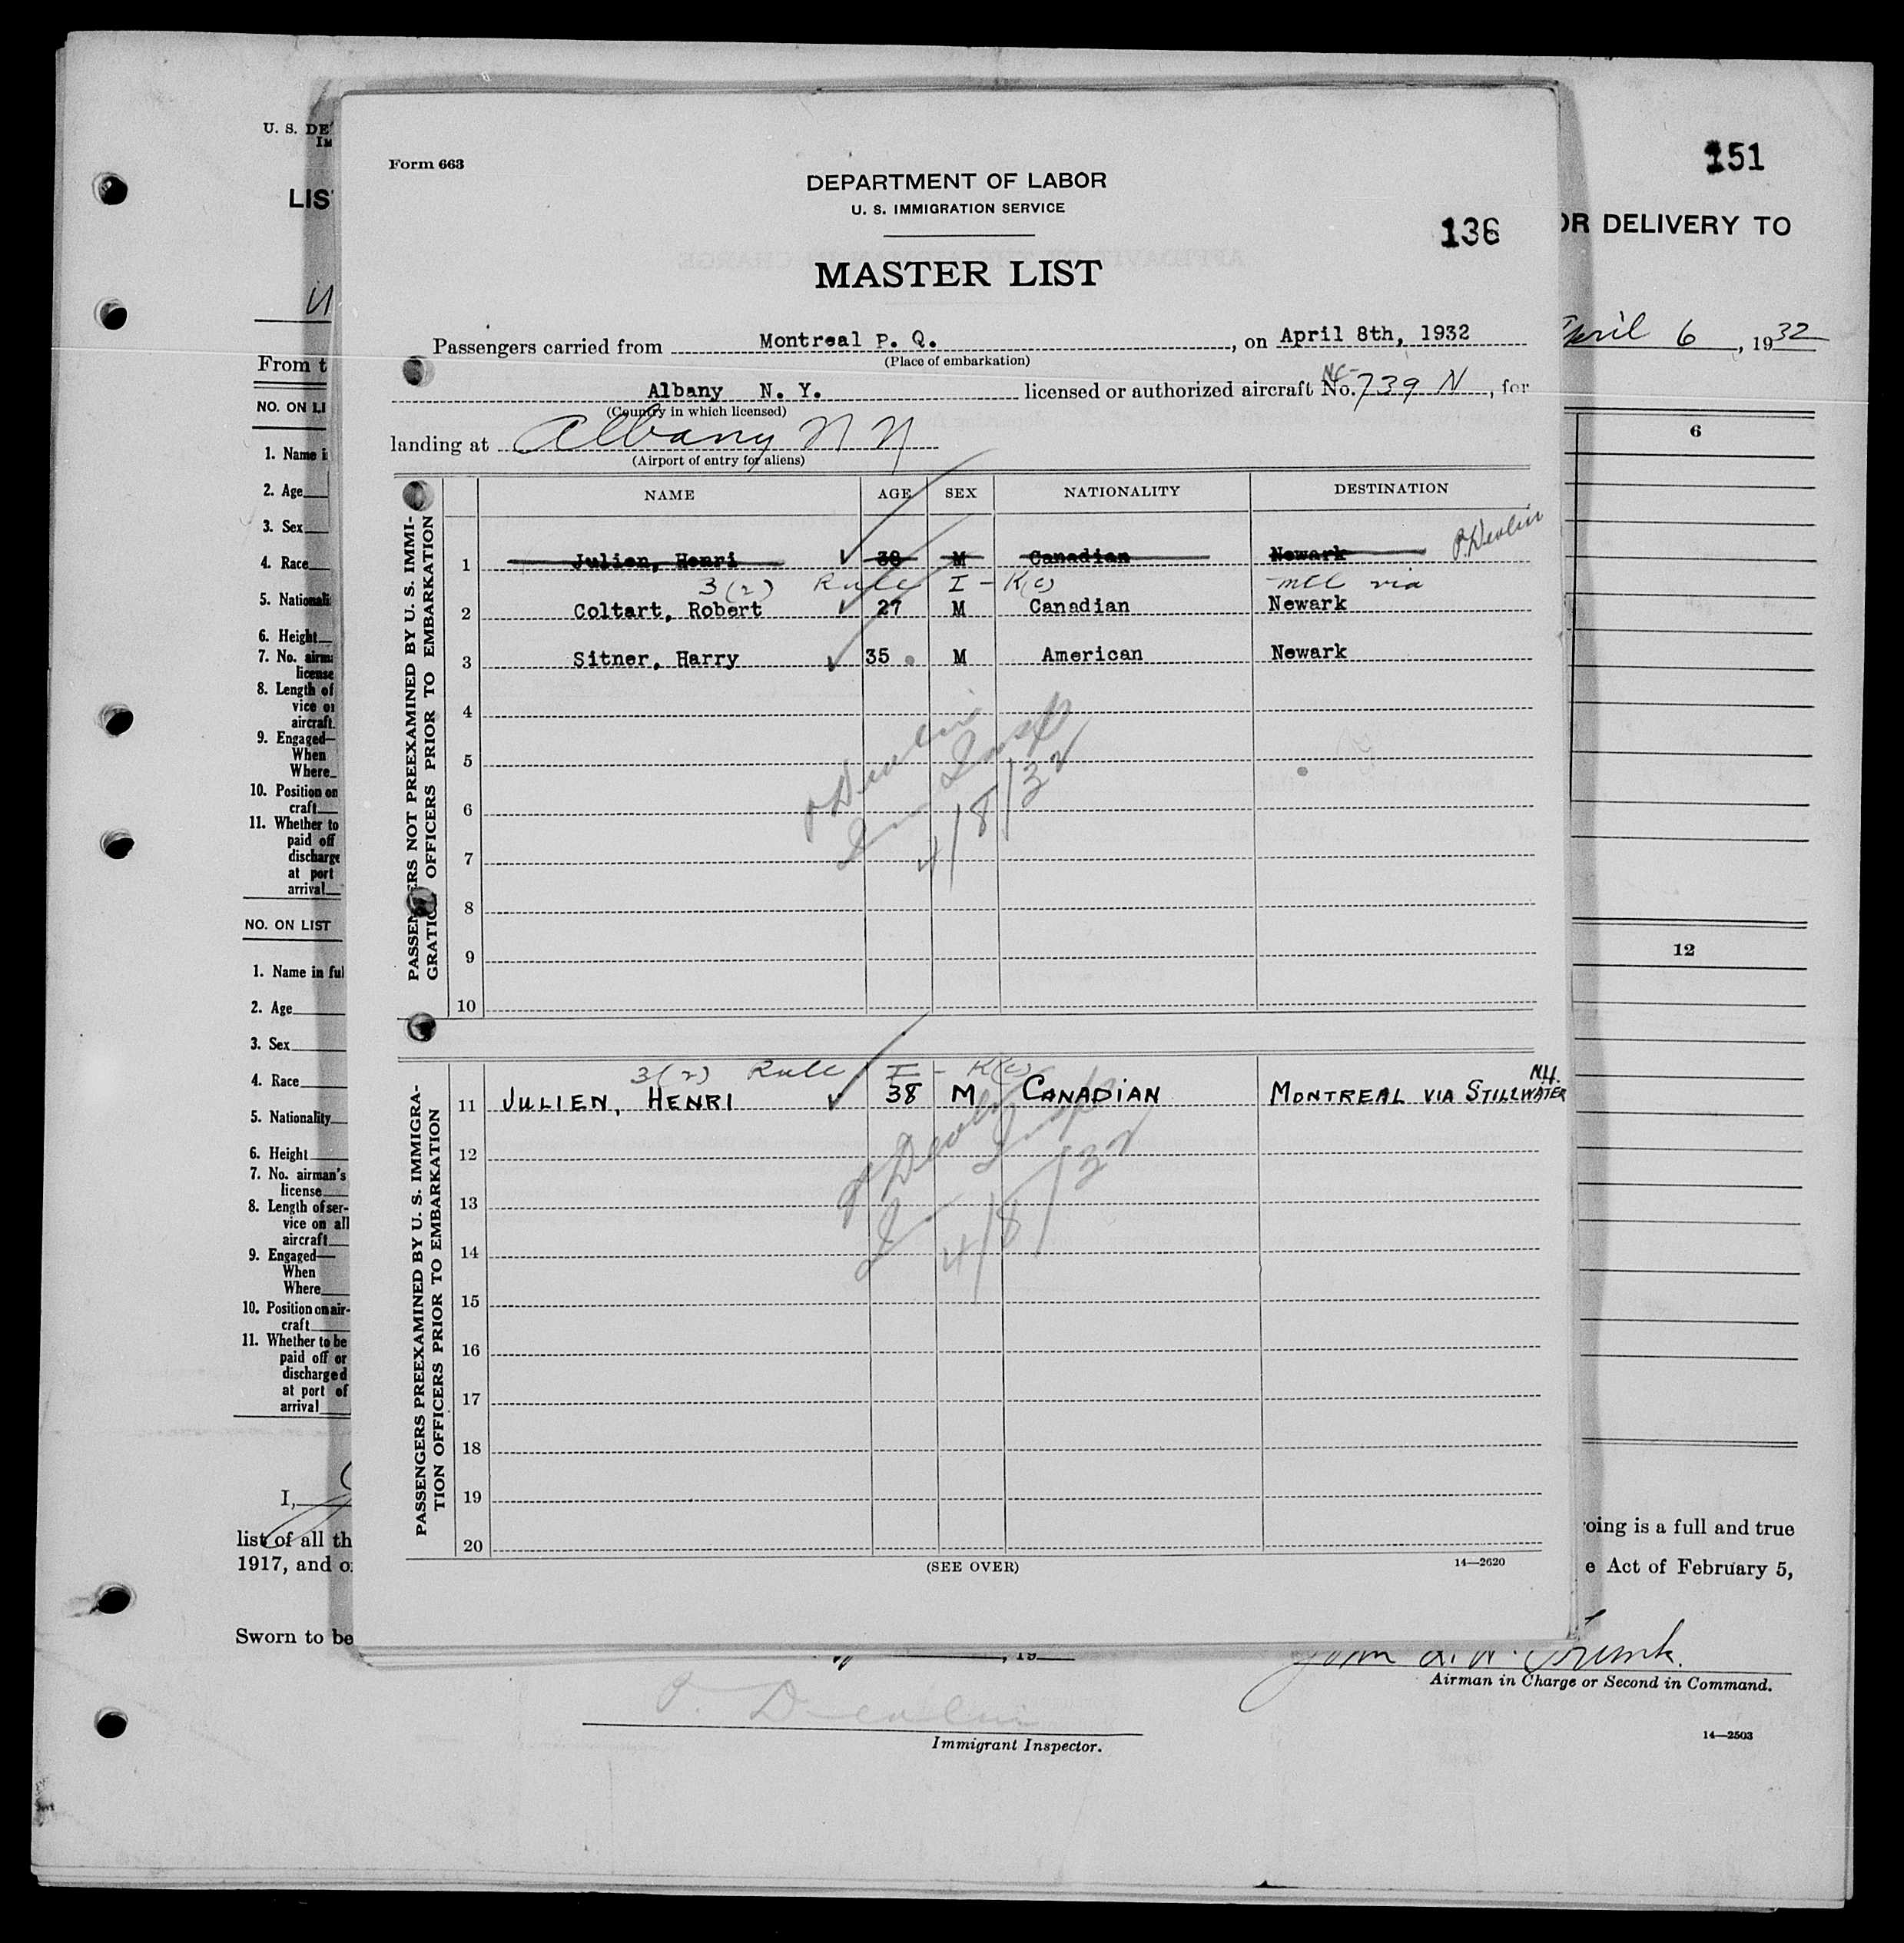 151
U. S. DE
Im
LIS
OR DELIVERY TO
April 6, 1932
From t
NO. ON LI
1. Name i
2. Age
3. Sex
4. Race
5. Nationali
6. Height
7. No. airm
license
8. Length of
vice o
aircraft.
9. Engaged—
When
Where
10. Position on
craft
11. Whether to
paid off
discharge
at port
arrival
6
NO. ON LIST
1. Name in ful
2. Age
3. Sex
4. Race
5. Nationality
6. Height
7. No. airman's
license
8. Length of ser-
vice on all
aircraft
9. Engaged—
When
Where
10. Position on air-
craft
11. Whether to be
paid off or
discharged
at port of
arrival
12
Form 663
DEPARTMENT OF LABOR
U. S. IMMIGRATION SERVICE
136
MASTER LIST
Passengers carried from Montreal P. Q., on April 8th, 1932
(Place of embarkation)
Albany N. Y. licensed or authorized aircraft No. NC-739 N, for
(Country in which licensed)
landing at Albany N Y
(Airport of entry for aliens)
NAME AGE SEX NATIONALITY DESTINATION
PASSENGERS NOT PREEXAMINED BY U. S. IMMI-
GRATION OFFICERS PRIOR TO EMBARKATION
P. Devlin
1 Julien, Henri 38 M Canadian Newark
3(2) Rule I - K(c) mcl via
2 Coltart, Robert 27 M Canadian Newark
3 Sitner, Harry 35 M American Newark
4
5
6
7
8
9
10
P Devlin
Im Insp
4/8/32
PASSENGERS PREEXAMINED BY U. S. IMMIGRA-
TION OFFICERS PRIOR TO EMBARKATION
3(2) Rule I - K(c)
11 JULIEN, HENRI 38 M CANADIAN MONTREAL VIA STILLWATER N.Y.
12
13
14
15
16
17
18
19
20
P Devlin
Im Insp
4/8/32
(SEE OVER)
14—2620
I,
oing is a full and true
list of all th
1917, and o
e Act of February 5,
Sworn to be
, 19
Airman in Charge or Second in Command.
P. Devlin
Immigrant Inspector.
14—2503